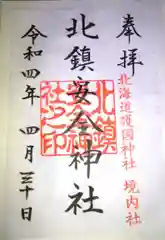 奉拝
北海道護国神社 境内社
北鎮安全神社
北鎮
安全神社
社之印
令和四年 四月三十日